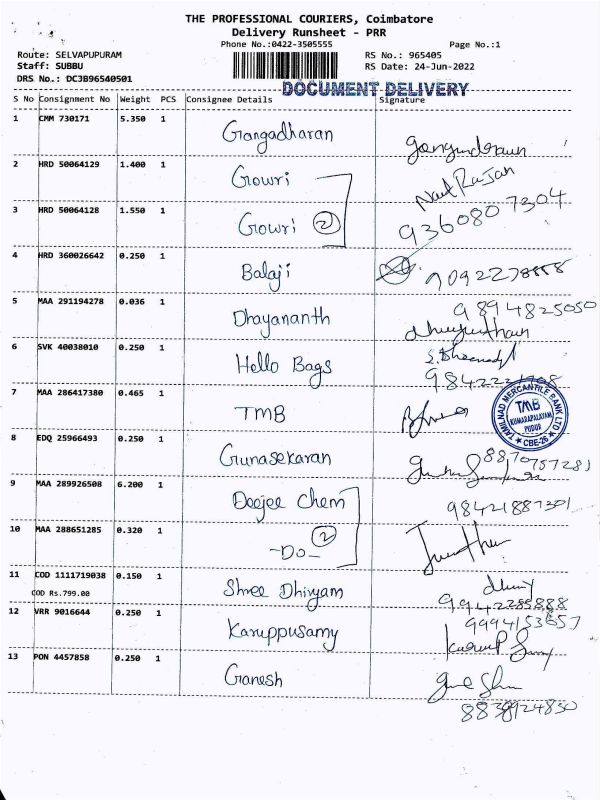 THE PROFESSIONAL COURIERS, Coimbatore
Delivery Runsheet - PRR
Phone No.:0422-3505555 Page No.:1
Route: SELVAPUPURAM RS No.: 965405
Staff: SUBBU RS Date: 24-Jun-2022
DRS No.: DC3B96540501
DOCUMENT DELIVERY
S No Consignment No Weight PCS Consignee Details Signature
1 CMM 730171 5.350 1 Gangadharan
2 HRD 50064129 1.400 1 Gowri
3 HRD 50064128 1.550 1 Gowri 2 936080 7304
4 HRD 360026642 0.250 1 Balaji
5 MAA 291194278 0.036 1 Dhayananth 9894825050
6 SVK 40038010 0.250 1 Hello Bags
7 MAA 286417380 0.465 1 TMB
TAMILNAD MERCANTILE BANK LTD
TMB
KUMARAPALAYAM
PUDUR
CBE-26
8 EDQ 25966493 0.250 1 Gunasekaran 8870757281
9 MAA 289926508 6.200 1 Deejee Chem
10 MAA 288651285 0.320 1 -Do- 2
11 COD 1111719038 0.150 1 Shree Dhivyam
COD Rs.799.00
12 VRR 9016644 0.250 1 Karuppusamy 9994153657
13 PON 4457858 0.250 1 Ganesh